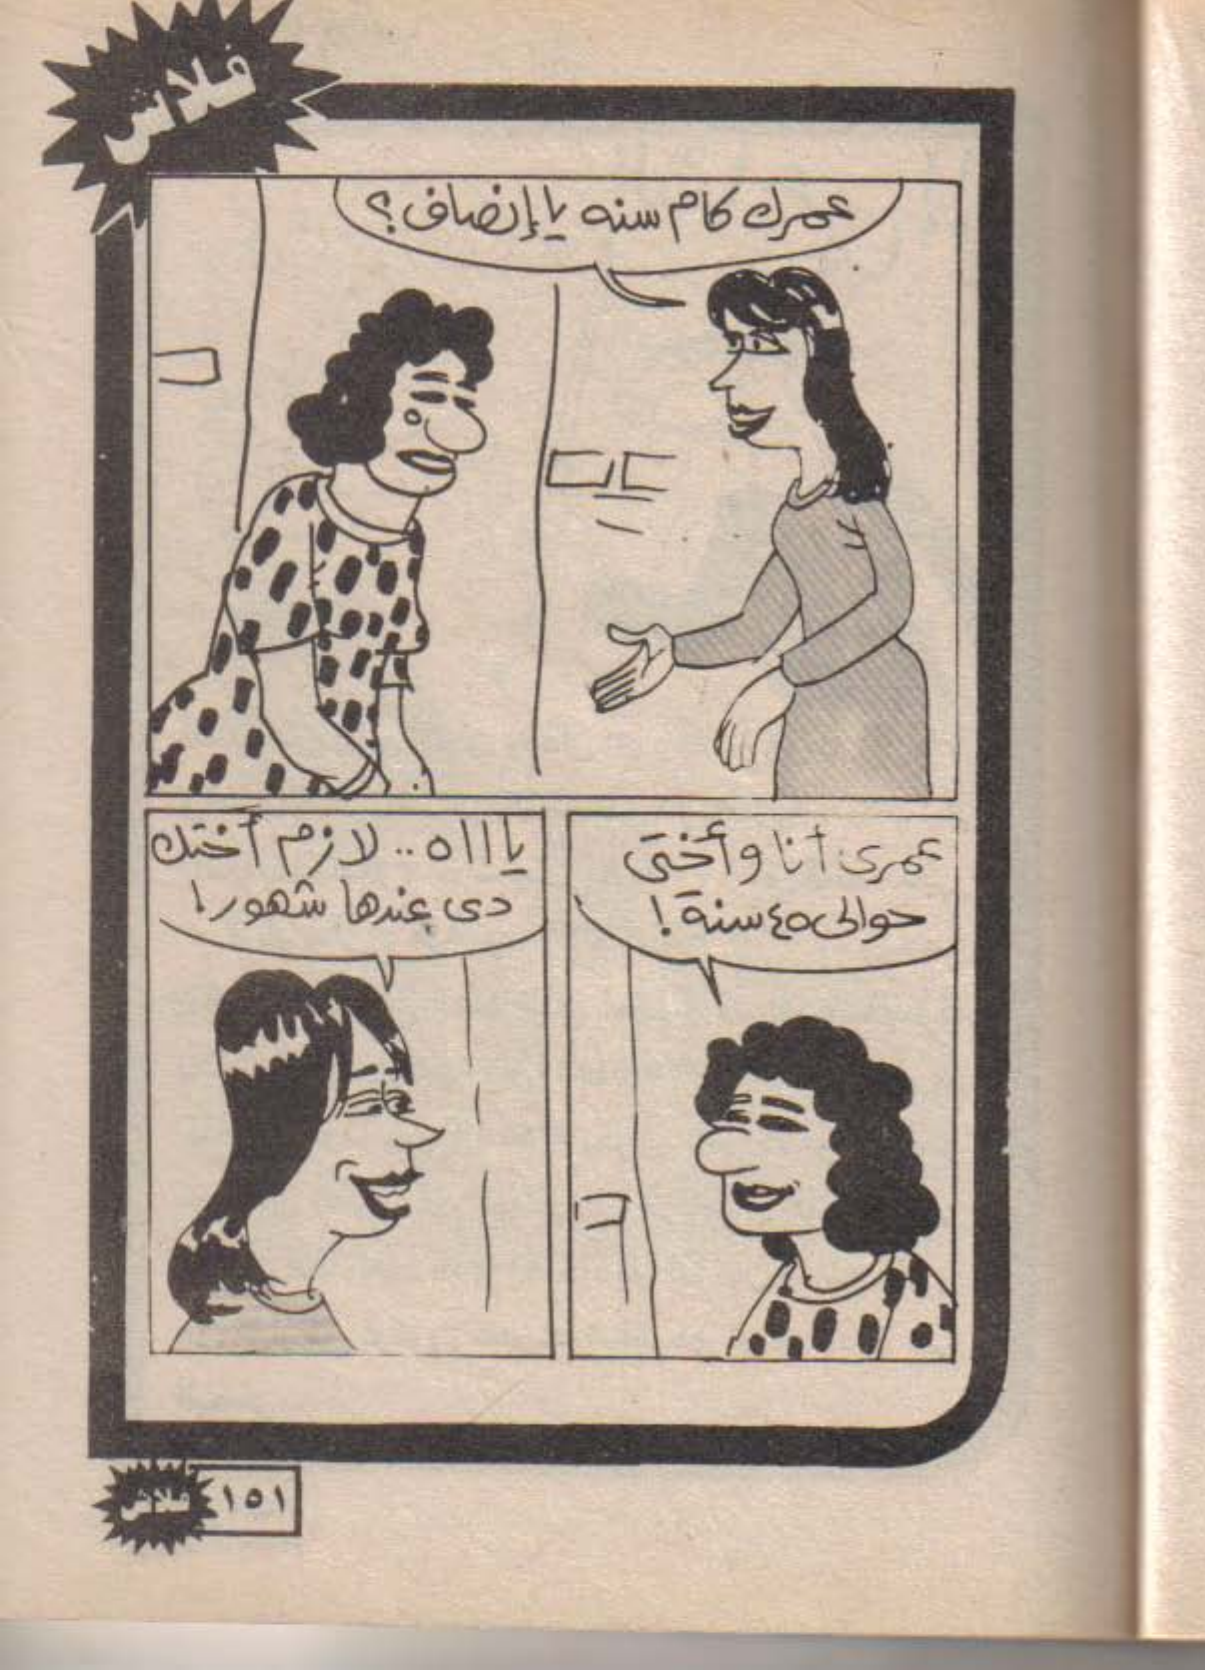 فلاش
عمرك كام سنه يا إنصاف؟
عمرى أنا وأختى
حوالى ٤٥ سنة!
يا ااه.. لازم أختك
دى عندها شهور!
فلاش ١٥١